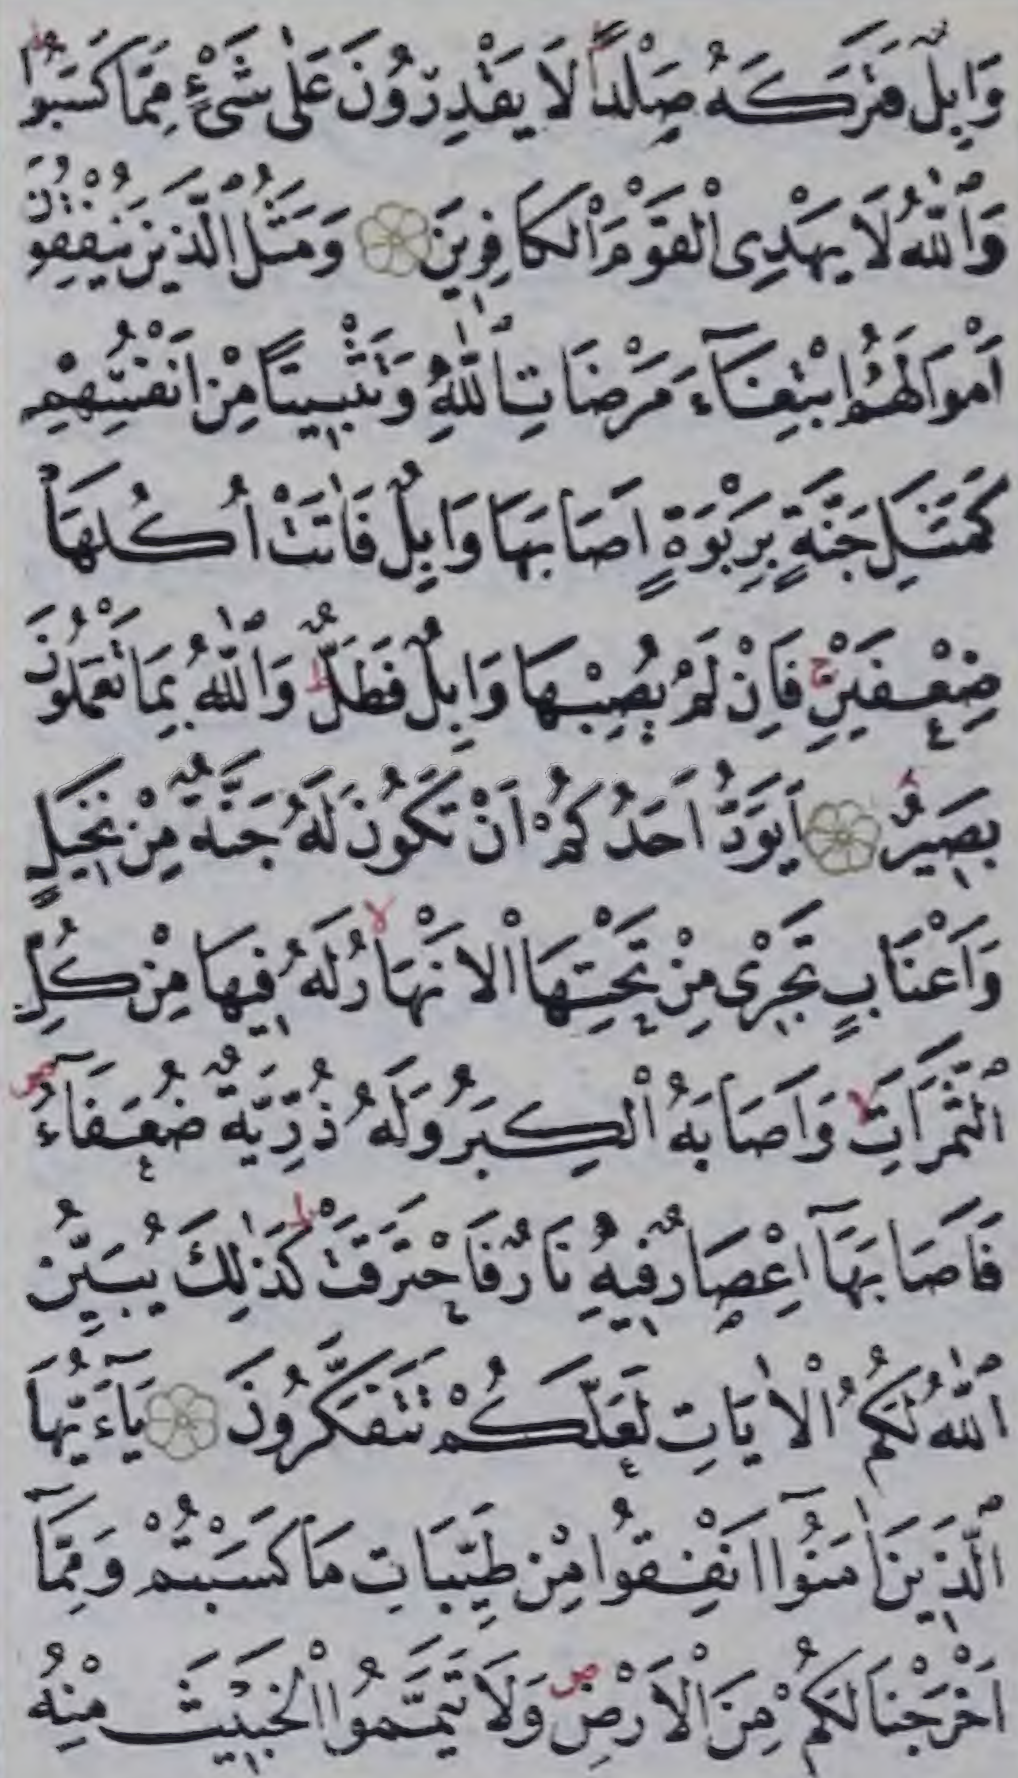 وَابِلٌ فَتَرَكَهُ صَلْدًا لَا يَقْدِرُونَ عَلٰى شَىْءٍ مِمَّا كَسَبُوا
وَاللّٰهُ لَا يَهْدِى الْقَوْمَ الْكَافِرِينَ وَمَثَلُ الَّذِينَ يُنْفِقُونَ
اَمْوَالَهُمُ ابْتِغَآءَ مَرْضَاتِ اللّٰهِ وَتَثْبِيتًا مِنْ اَنْفُسِهِمْ
كَمَثَلِ جَنَّةٍ بِرَبْوَةٍ اَصَابَهَا وَابِلٌ فَاٰتَتْ اُكُلَهَا
ضِعْفَيْنِ ج فَاِنْ لَمْ يُصِبْهَا وَابِلٌ فَطَلٌّ ط وَاللّٰهُ بِمَا تَعْمَلُونَ
بَصِيرٌ اَيَوَدُّ اَحَدُكُمْ اَنْ تَكُونَ لَهُ جَنَّةٌ مِنْ نَخِيلٍ
وَاَعْنَابٍ تَجْرِى مِنْ تَحْتِهَا الْاَنْهَارُ لا لَهُ فِيهَا مِنْ كُلِّ
الثَّمَرَاتِ لا وَاَصَابَهُ الْكِبَرُ وَلَهُ ذُرِّيَّةٌ ضُعَفَآءُ ص
فَاَصَابَهَآ اِعْصَارٌ فِيهِ نَارٌ فَاحْتَرَقَتْ ط كَذٰلِكَ يُبَيِّنُ
اللّٰهُ لَكُمُ الْاٰيَاتِ لَعَلَّكُمْ تَتَفَكَّرُونَ يَآءَيُّهَا
الَّذِينَ اٰمَنُوآ اَنْفِقُوا مِنْ طَيِّبَاتِ مَا كَسَبْتُمْ وَمِمَّآ
اَخْرَجْنَا لَكُمْ مِنَ الْاَرْضِ ص وَلَا تَيَمَّمُوا الْخَبِيثَ مِنْهُ